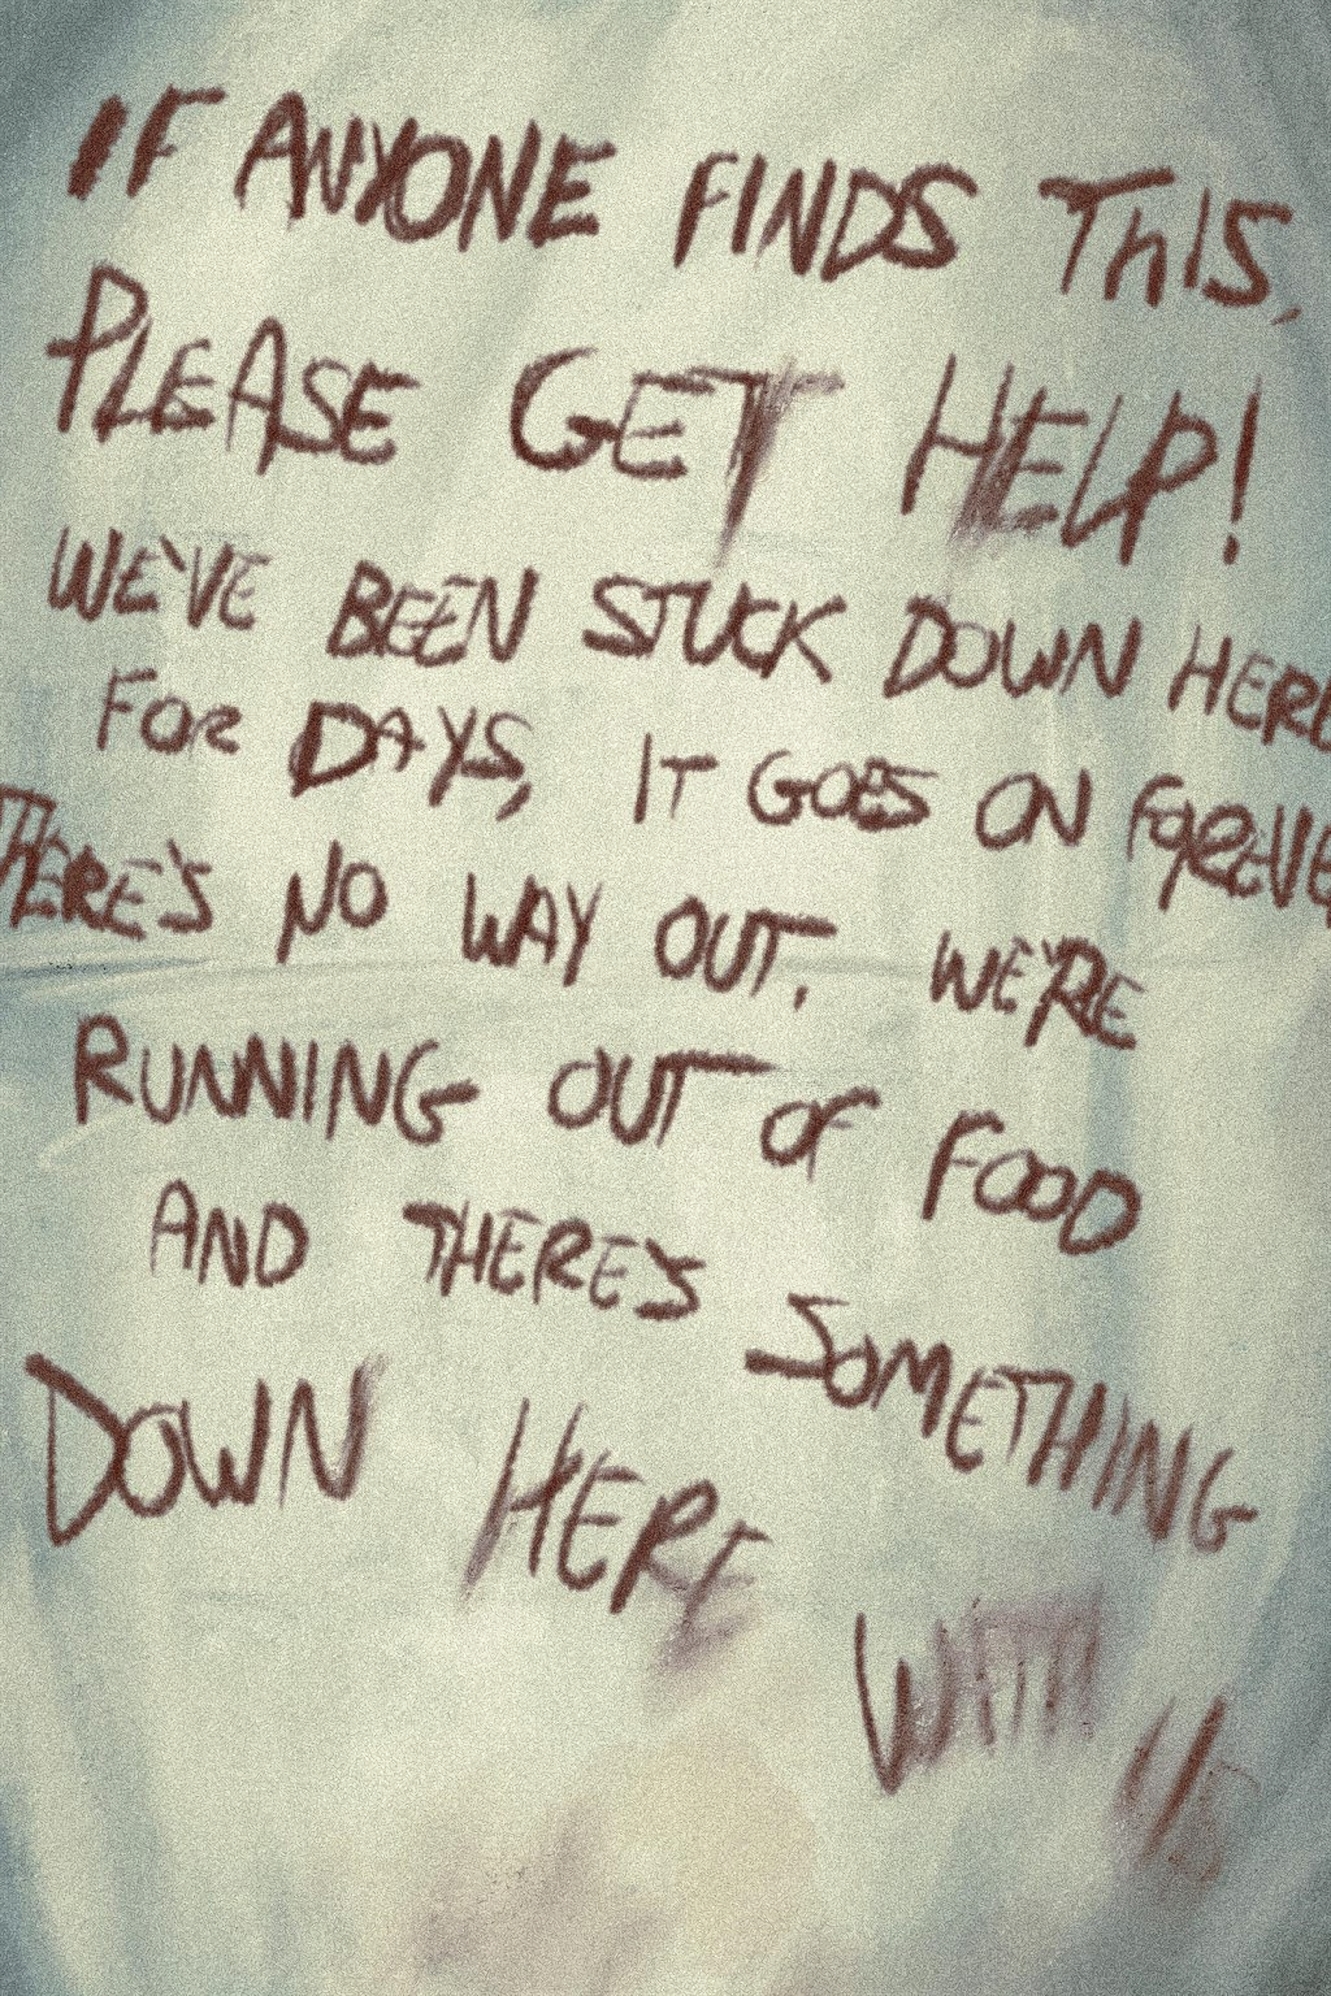 IF ANYONE FINDS ThIS,
PLEASE GET HELP!
WE'VE BEEN STUCK DOWN HERE
FOR DAYS, IT GOES ON FOREVE
THERE'S NO WAY OUT. WE'RE
RUNNING OUT OF FOOD
AND THERE'S SOMETHING
DOWN HERE
WITH
US